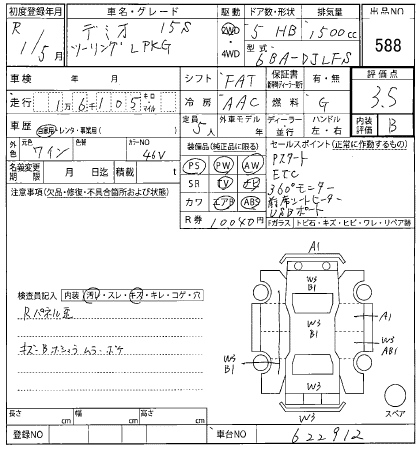 初度登録年月 車名・グレード 駆動 ドア数・形状 排気量 出品NO
R 1/5月 デミオ 15S 2WD・4WD 5 HB 1500cc 588
ツーリングLPKG 型式 6BA-DJLFS
車検 年 月 シフト FAT 保証書 有・無 評価点
走行 1万6105 キロ・マイル 冷房 AAC 燃料 G 3.5
車歴 自家用・レンタ・事業用 定員 5人 外車モデル 年 ディーラー・並行 ハンドル 左・右 内装評価 B
外色 元色 ワイン 色替 カラーNO 46V 装備品(純正品に限る) セールスポイント(正常に作動するもの)
名義変更期限 月 日迄 積載 t PS PW AW Pスタート
注意事項(欠品・修復・不具合箇所および状態) SR TV ナビ ETC
カワ エアB ABS 360°モニター
R券 10040円 前席シートヒーター
USBポート
Fガラス トビ石・キズ・ヒビ・ワレ・リペア跡
A1
検査員記入 内装 汚レ・スレ・キズ・キレ・コゲ・穴
Rパネル歪
キズ・Bホシュウ ムラ・ボケ
W3 B1
W3 B1
A1
W3 B1
W3 AB1
W3
W3
スペア
長さ cm 幅 cm 高さ cm
登録NO 車台NO 622912